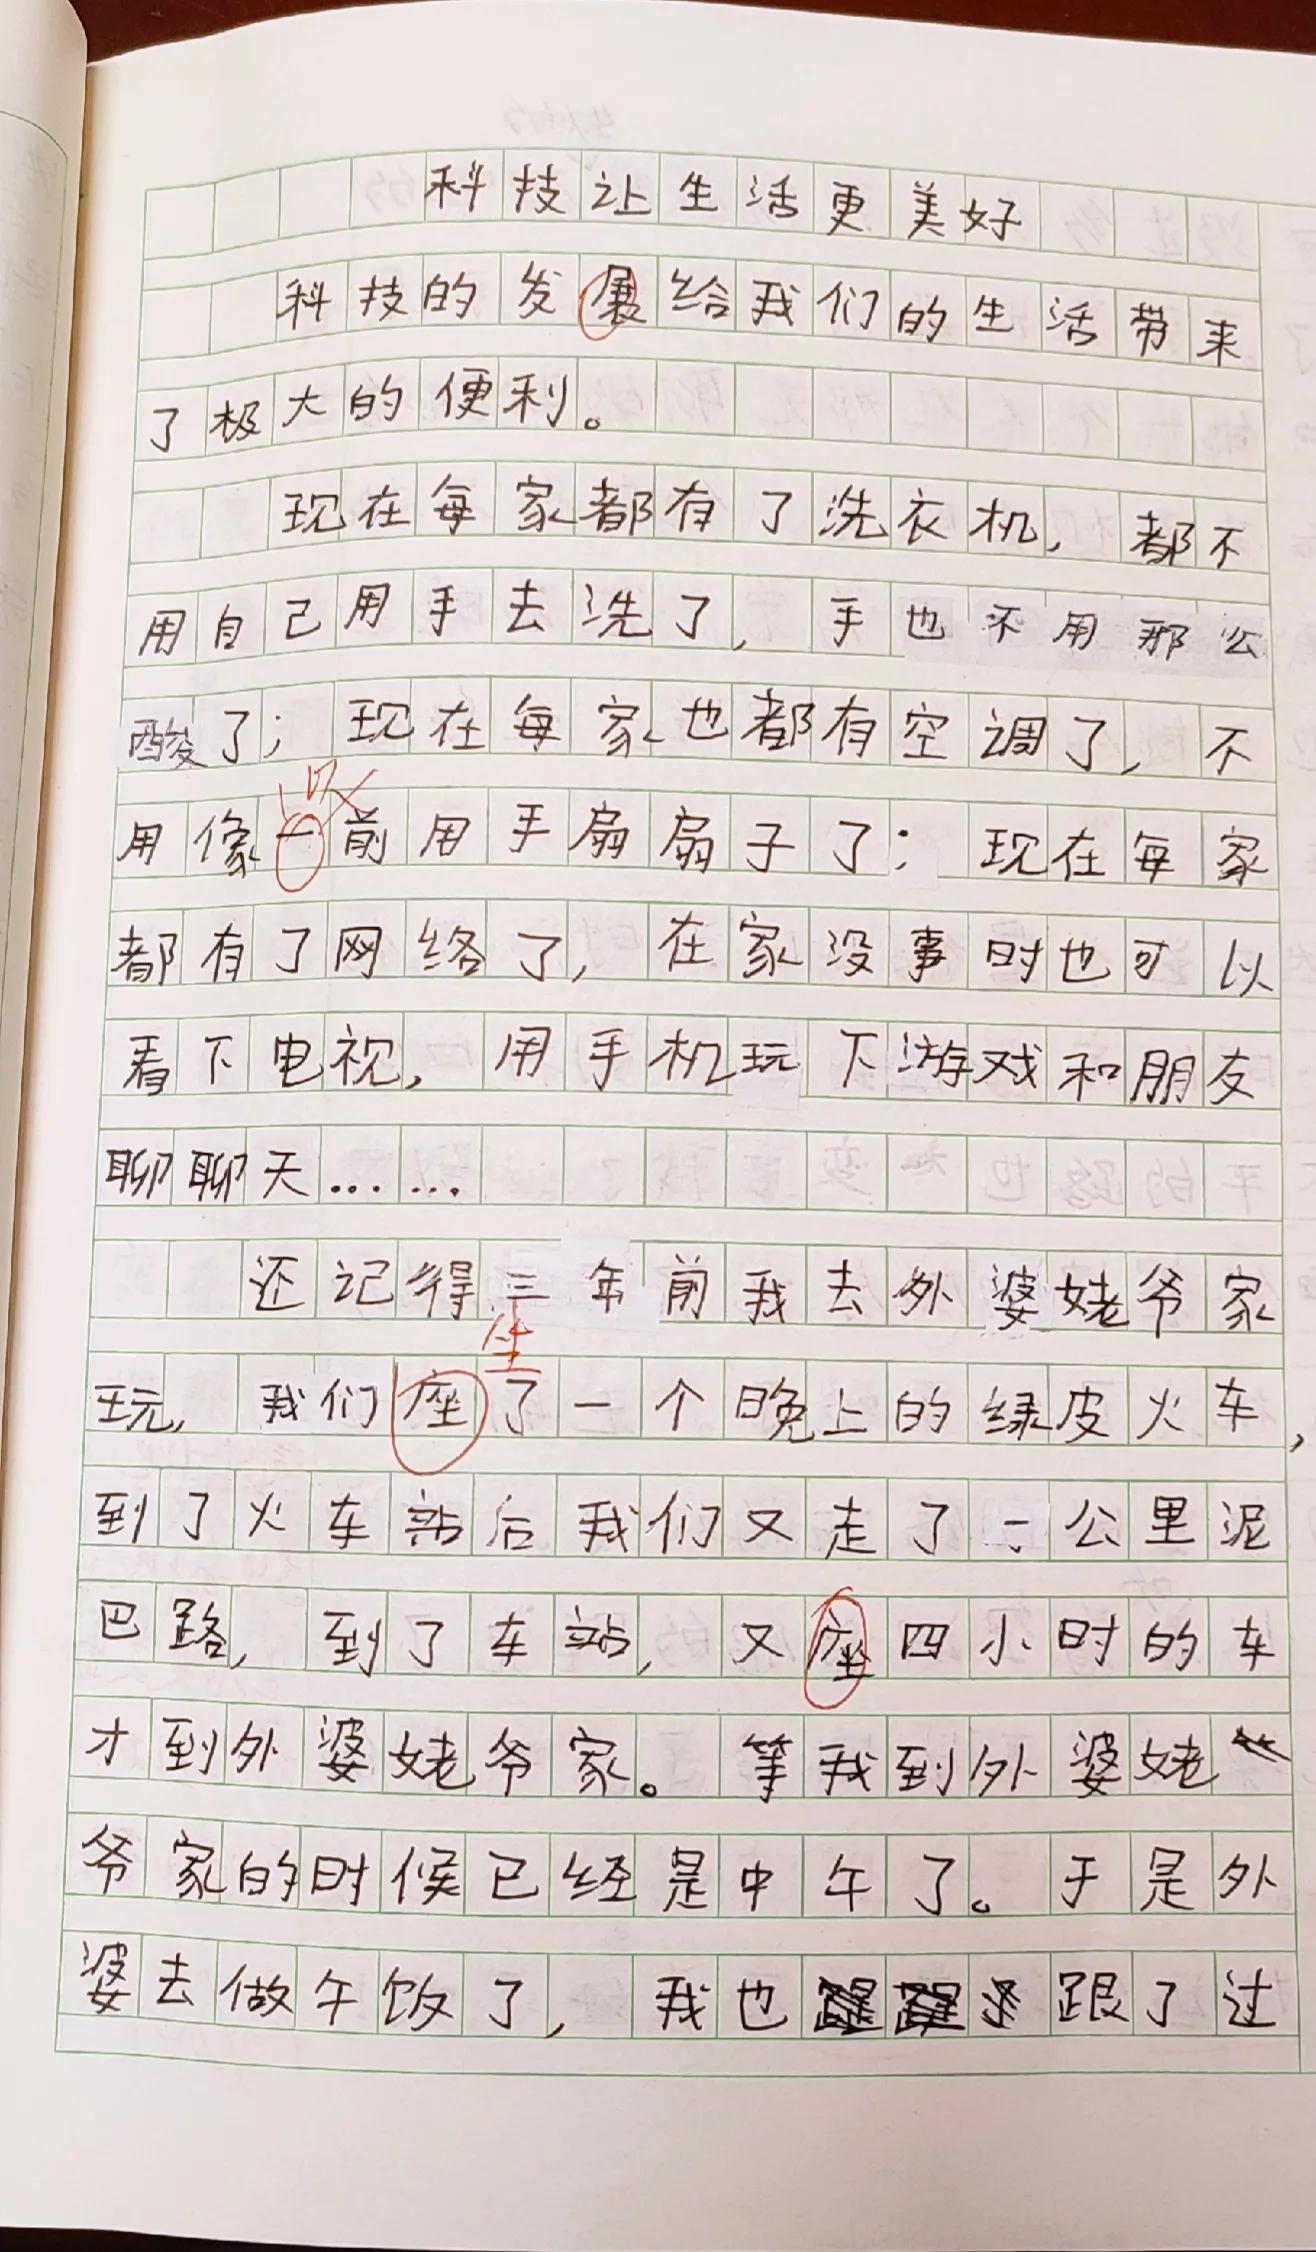 科技让生活更美好
科技的发展给我们的生活带来
了极大的便利。
现在每家都有了洗衣机，都不
用自己用手去洗了，手也不用那公
酸了；现在每家也都有空调了，不
以
用像一前用手扇扇子了；现在每家
都有了网络了，在家没事时也可以
看下电视，用手机玩下游戏和朋友
聊聊天……
还记得三年前我去外婆姥爷家
坐
玩，我们座了一个晚上的绿皮火车，
到了火车站后我们又走了一公里泥
巴路，到了车站，又座四小时的车
才到外婆姥爷家。等我到外婆姥
爷家的时候已经是中午了。于是外
婆去做午饭了，我也跟了过